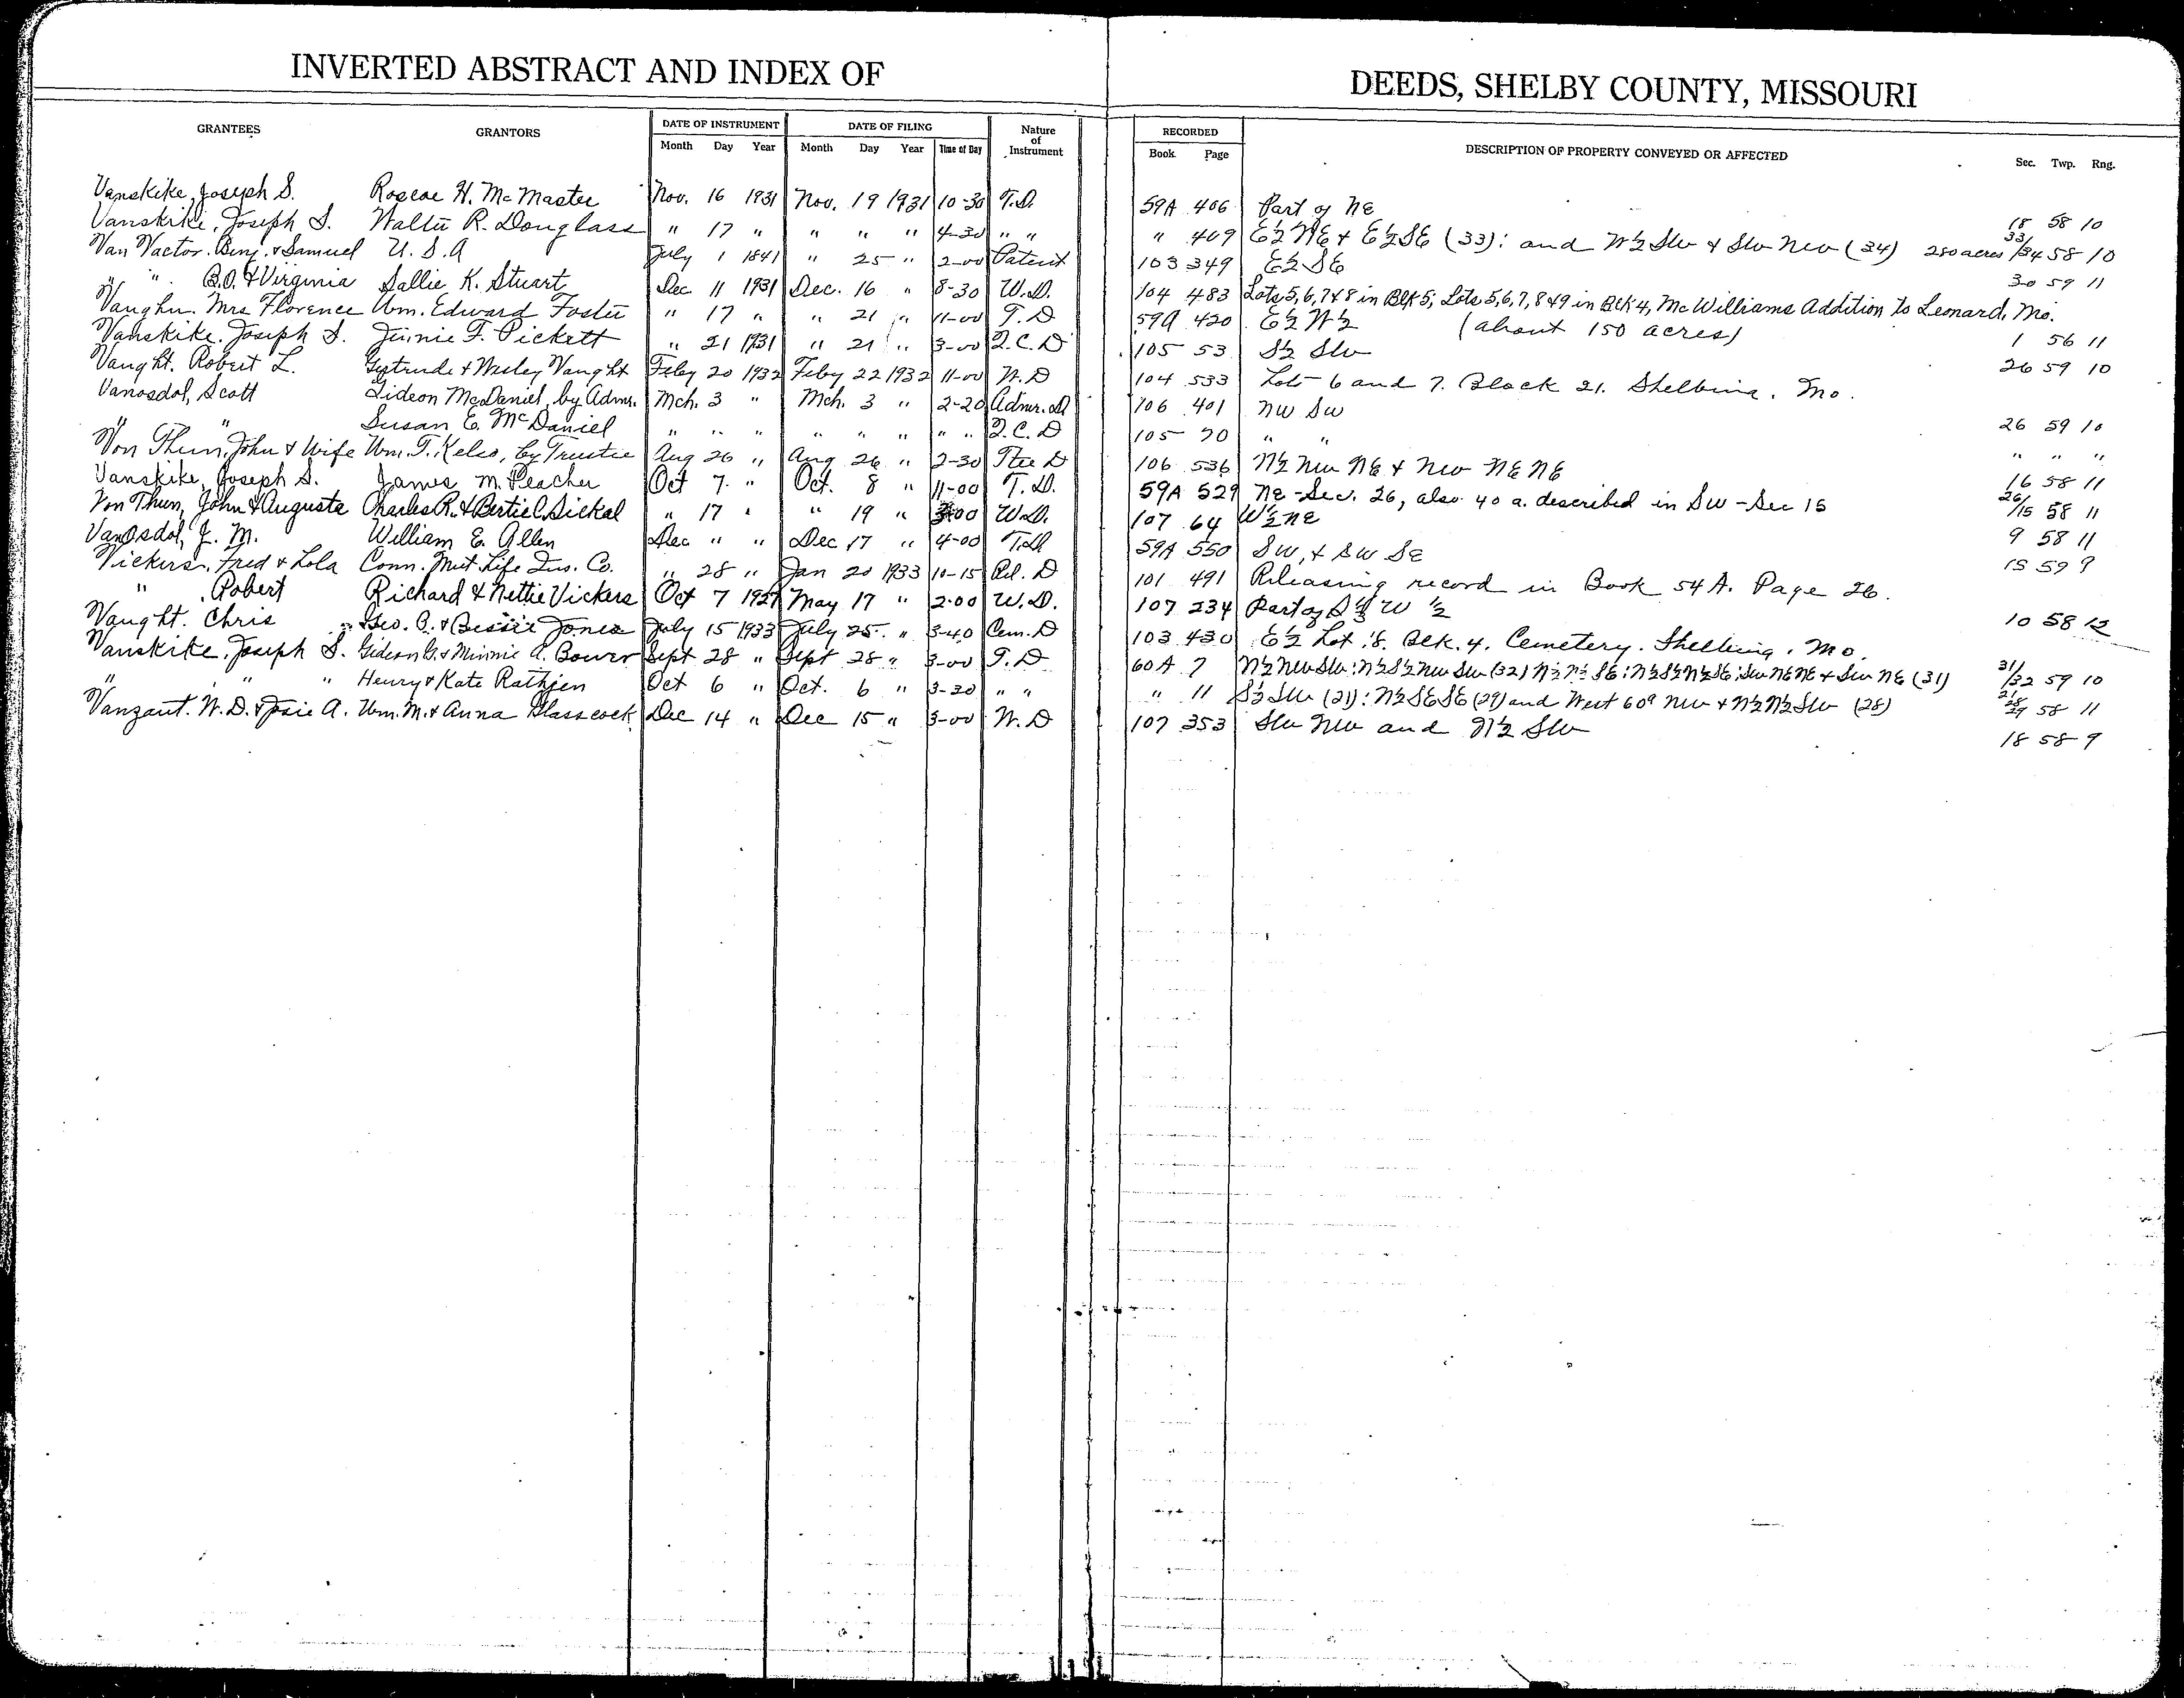 INVERTED ABSTRACT AND INDEX OF DEEDS, SHELBY COUNTY, MISSOURI
GRANTEES GRANTORS DATE OF INSTRUMENT DATE OF FILING Nature of Instrument RECORDED DESCRIPTION OF PROPERTY CONVEYED OR AFFECTED Sec. Twp. Rng.
Month Day Year Month Day Year Time of Day Book Page
Vanskike, Joseph S. Roscoe H. McMaster Nov. 16 1931 Nov. 19 1931 10-30 T.D. 59A 406 Part of NE 18 58 10
Vanskike, Joseph S. Walter R. Douglass " 17 " " " " 4-30 " " " 409 E½ NE + E½ SE (33): and W½ SW + SW NW (34) 280 acres 33/34 58 10
Van Vactor. Benj. & Samuel U.S.A July 1 1841 " 25 " 2-00 Patent 103 349 E½ SE 30 59 11
" " B.O. & Virginia Sallie K. Stuart Dec 11 1931 Dec. 16 " 8-30 W.D. 104 483 Lots 5, 6, 7 & 8 in Blk 5; Lots 5, 6, 7, 8 & 9 in Blk 4, McWilliams Addition to Leonard, Mo.
Vaughn. Mrs Florence Wm. Edward Foster " 17 " " 21 " 11-00 T.D 59A 420 E½ W½ (about 150 acres) 1 56 11
Vanskike. Joseph S. Jinnie F. Pickett " 21 1931 " 21 " 3-00 Q.C.D 105 53 S½ SW 26 59 10
Vaught. Robert L. Gertrude & Wesley Vaught Feby 20 1932 Feby 22 1932 11-00 W.D 104 533 Lots 6 and 7. Block 21. Shelbina. Mo.
Vanosdol, Scott Gideon McDaniel, by Admr. Mch. 3 " Mch. 3 " 2-20 Admr. D 106 401 NW SW 26 59 10
" Susan E. McDaniel " " " " " " " " Q.C.D 105 70 " " " " "
Von Thun, John & Wife Wm. T. Kelso, by Trustee Aug 26 " Aug 26 " 2-30 Ttee D 106 536 N½ NW NE + NW NE NE 16 58 11
Vanskike, Joseph S. James M. Peacher Oct 7 " Oct. 8 " 11-00 T.D. 59A 529 NE - Sec. 26, also 40 a. described in SW - Sec 15 26/15 58 11
Von Thun, John & Augusta Charles R. & Bertie C. Sickal " 17 " " 19 " 3-00 W.D. 107 64 W½ NE 9 58 11
VanOsdol, J. M. William E. Allen Dec " " Dec 17 " 4-00 T.D 59A 550 SW, + SW SE 15 59 9
Vickers, Fred & Lola Conn. Mut. Life Ins. Co. " 28 " Jan 20 1933 10-15 Rel. D 101 491 Releasing record in Book 54 A. Page 26.
" Robert Richard & Nettie Vickers Oct 7 1927 May 17 " 2-00 W.D. 107 234 Part of W ½ 10 58 12
Vaught. Chris Geo. A. & Bessie Jones July 15 1933 July 25 " 3-40 Cem. D 103 430 E½ Lot 8. Blk. 4. Cemetery. Shelbina. Mo.
Vanskike, Joseph S. Gideon G. & Minnie A. Bower Sept 28 " Sept 28 " 3-00 T.D 60A 7 N½ NW SW: N½ S½ NW SW (32) N½ N½ SE: N½ S½ N½ SE; SW NE NE + SW NE (31) 31/32 59 10
" " " Henry & Kate Rathjen Oct 6 " Oct. 6 " 3-20 " " " 11 S½ SW (21): N½ SE SE (29) and West 60a NW + N½ N½ SW (28) 21/28/29 58 11
Vanzant. W. D. & Josie A. Wm. M. & Anna Glasscock Dec 14 " Dec 15 " 3-00 W.D 107 353 SW NW and N½ SW 18 58 9